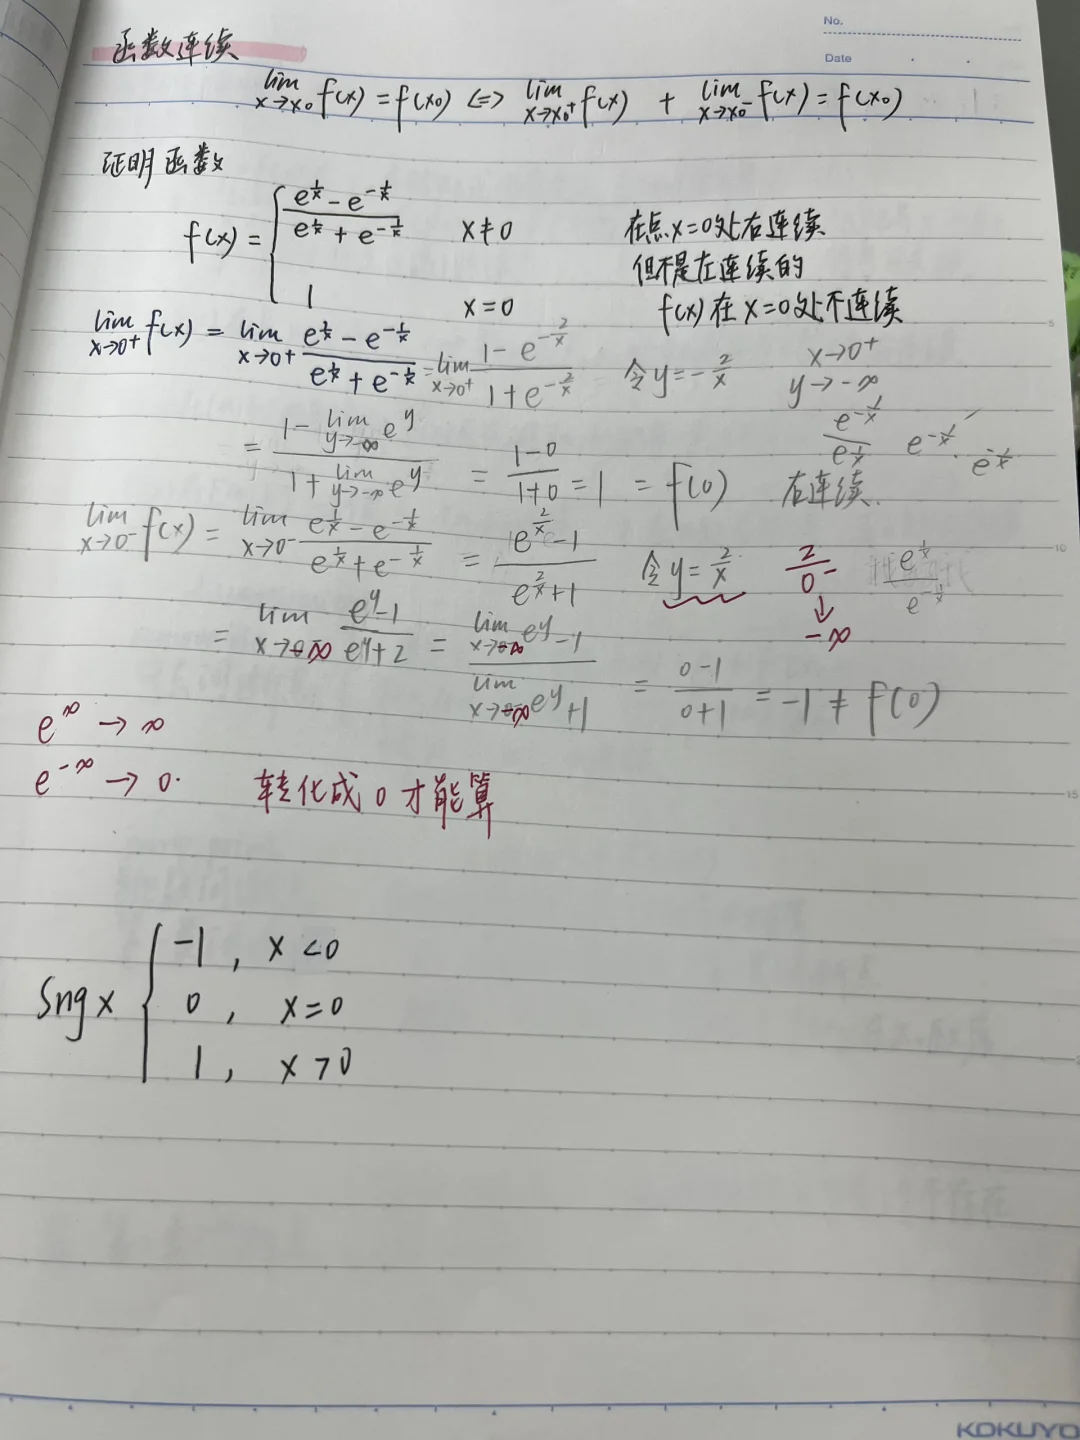 No.
Date
函数连续
lim x→x₀ f(x) = f(x₀) ⇔ lim x→x₀⁺ f(x) + lim x→x₀⁻ f(x) = f(x₀)
证明函数
f(x) = { (e^(1/x) − e^(−1/x)) / (e^(1/x) + e^(−1/x))  x≠0  在点x=0处右连续
但不是左连续的
1  x=0  f(x)在x=0处不连续
lim x→0⁺ f(x) = lim x→0⁺ (e^(1/x) − e^(−1/x)) / (e^(1/x) + e^(−1/x)) = lim x→0⁺ (1 − e^(−2/x)) / (1 + e^(−2/x))  令y=−2/x  x→0⁺
y→−∞
= (1 − lim y→−∞ e^y) / (1 + lim y→−∞ e^y) = (1−0)/(1+0) = 1 = f(0)  右连续.
e^(−1/x) / e^(1/x)  e^(−1/x) · e^(−1/x)
lim x→0⁻ f(x) = lim x→0⁻ (e^(1/x) − e^(−1/x)) / (e^(1/x) + e^(−1/x)) = (e^(2/x) − 1) / (e^(2/x) + 1)  令y=2/x  2/0− ↓ −∞  e^(1/x) / e^(−1/x)
= lim x→−∞ (e^y − 1) / (e^y + 2) = (lim x→−∞ e^y − 1) / (lim x→−∞ e^y + 1) = (0−1)/(0+1) = −1 ≠ f(0)
e^∞ → ∞
e^−∞ → 0.  转化成0才能算
Sng x { −1, x<0
0, x=0
1, x>0
5
10
15
KOKUYO